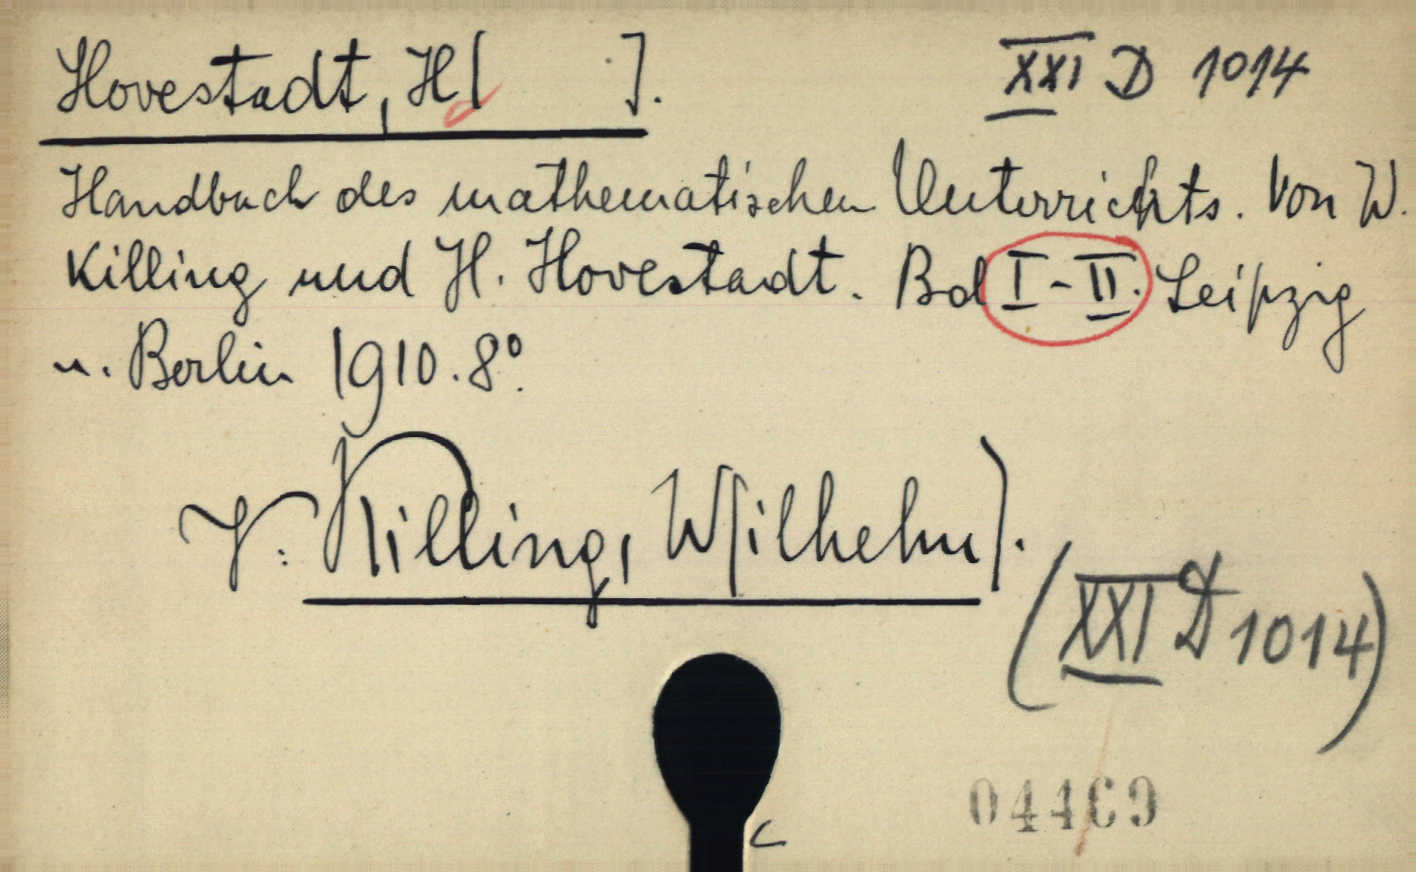 Hovestadt, H[ ].
XXI D 1014
Handbuch des mathematischen Unterrichts. Von W.
Killing und H. Hovestadt. Bd I-II. Leipzig
u. Berlin 1910. 8°.
V. Killing, W[ilhelm].
(XXI D 1014)
04469